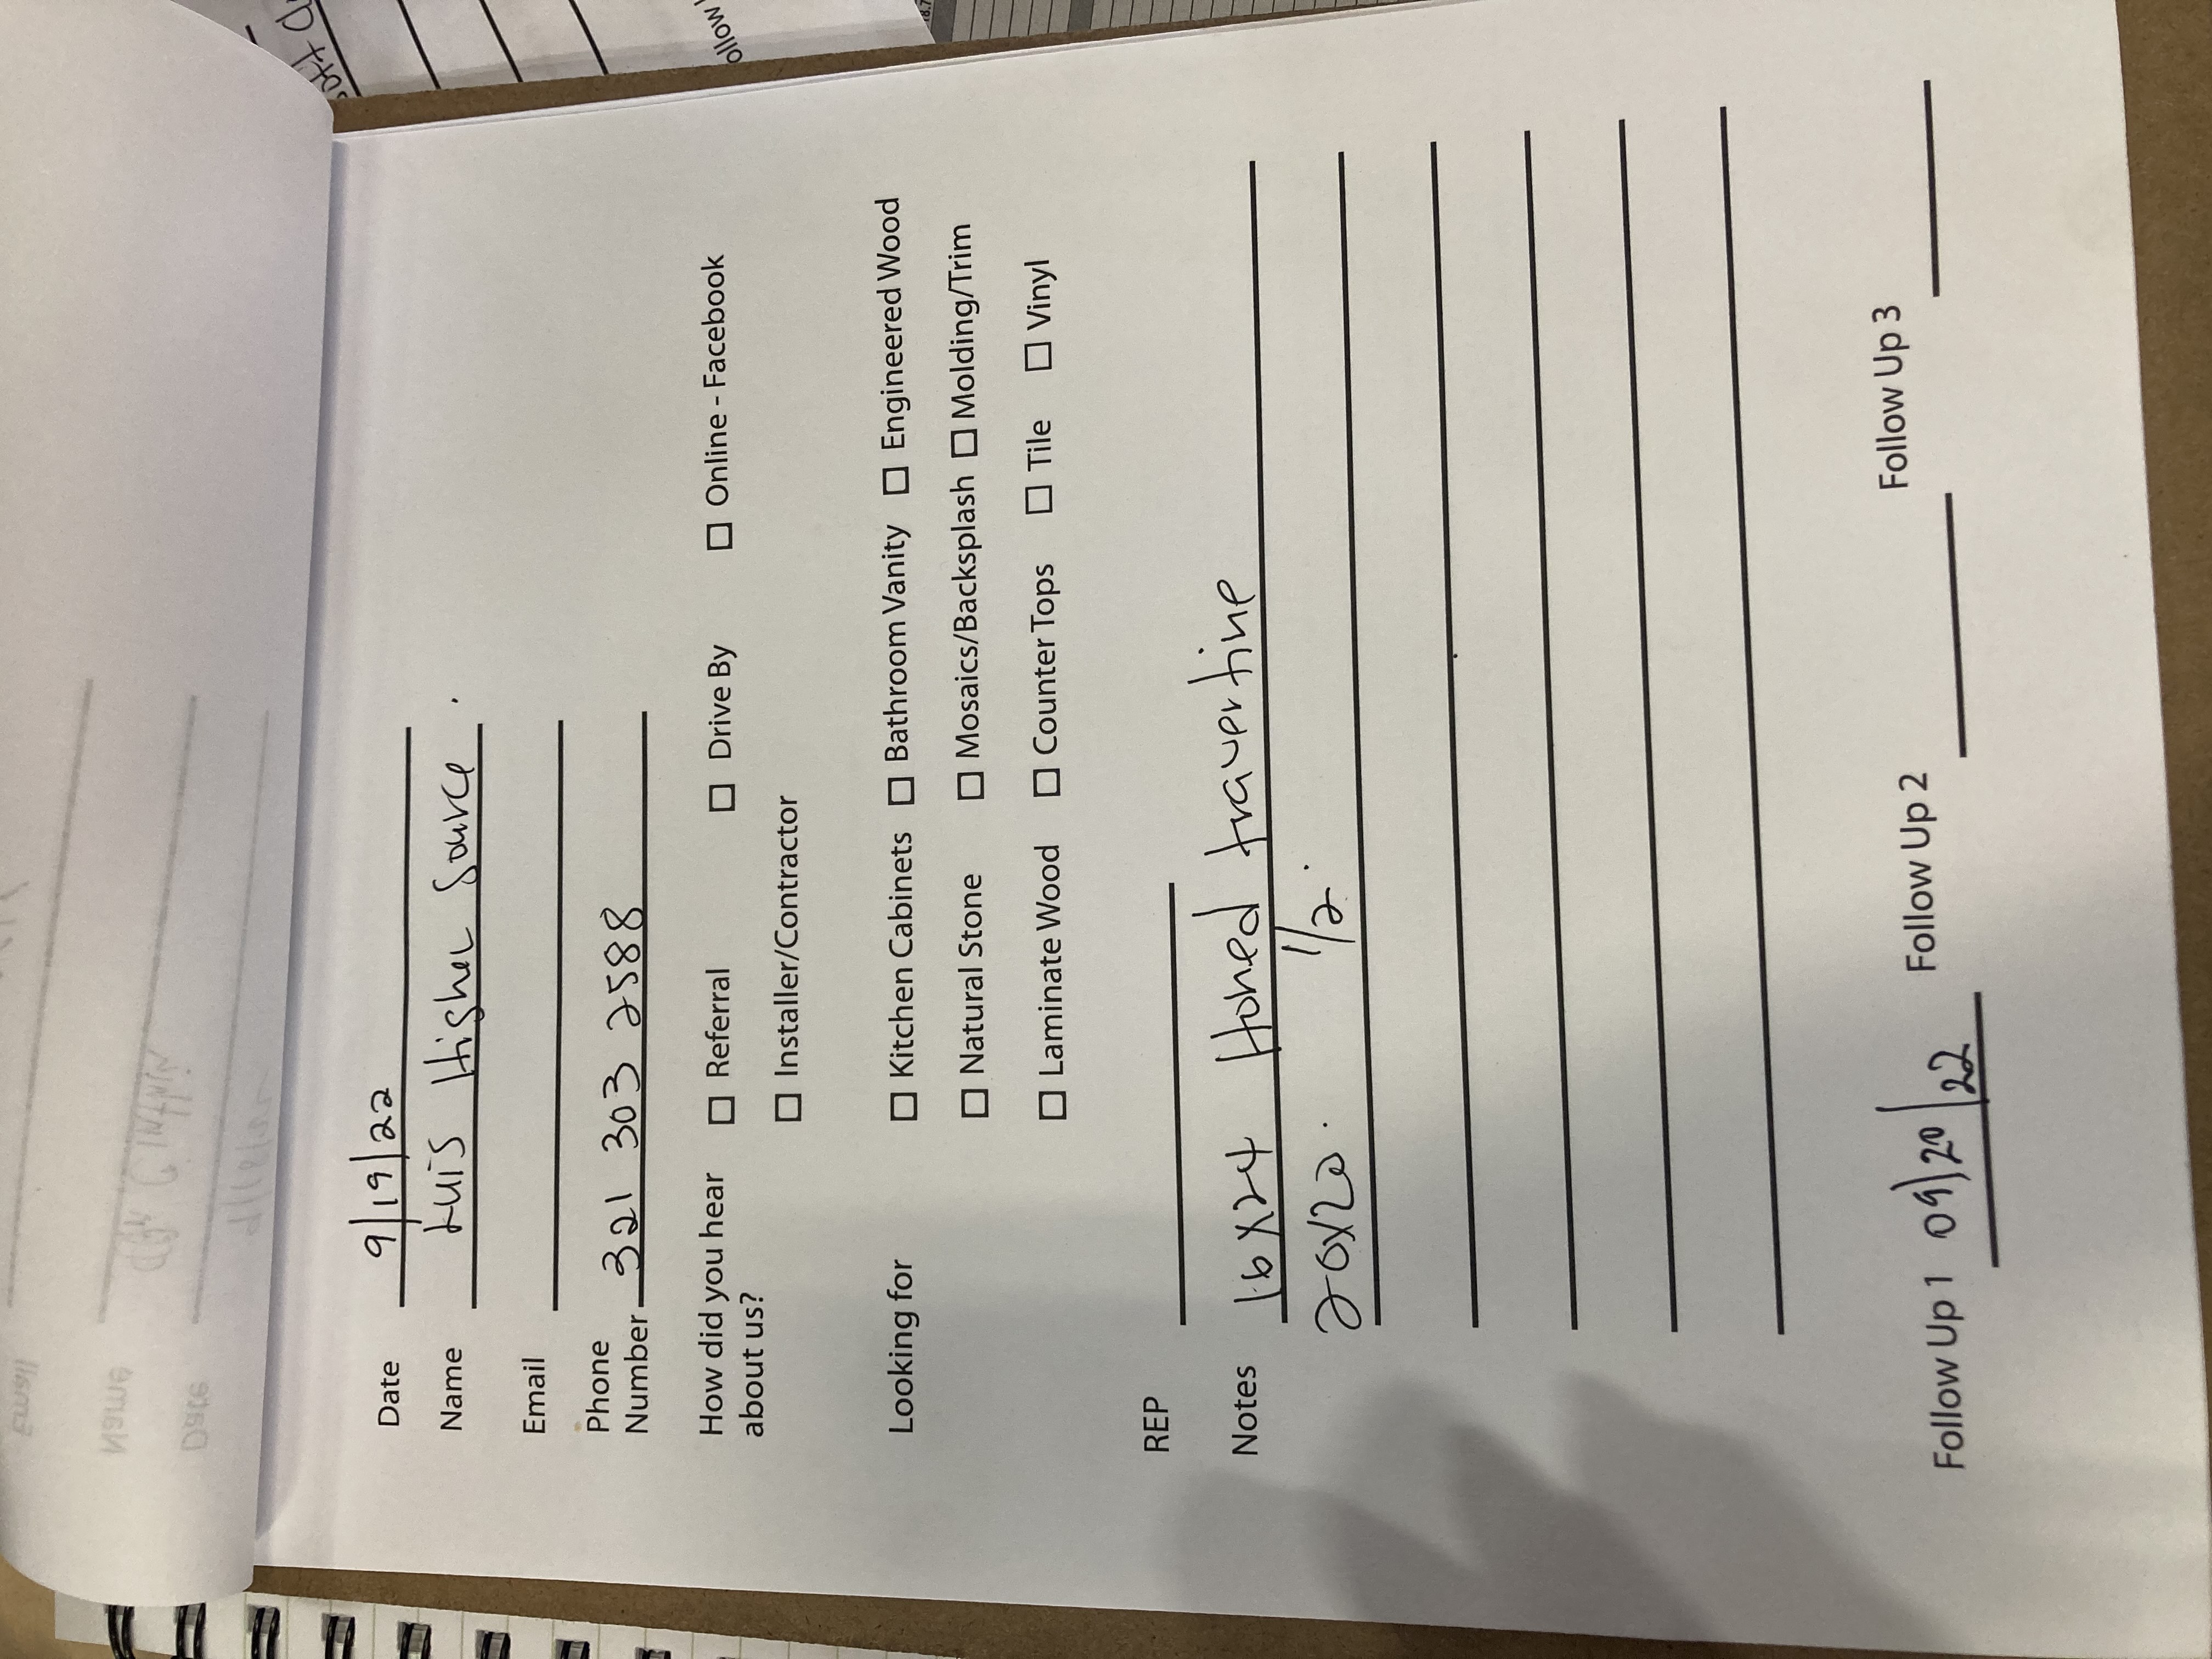 Date 9/19/22
Name Luis Higher Source.
Email
Phone
Number 321 303 2588
How did you hear ☐ Referral ☐ Drive By ☐ Online - Facebook
about us? ☐ Installer/Contractor
Looking for ☐ Kitchen Cabinets ☐ Bathroom Vanity ☐ Engineered Wood
☐ Natural Stone ☐ Mosaics/Backsplash ☐ Molding/Trim
☐ Laminate Wood ☐ Counter Tops ☐ Tile ☐ Vinyl
REP
Notes 16x24 Honed travertine
20x20. 1/2.
Follow Up 1 09/20/22 Follow Up 2 Follow Up 3